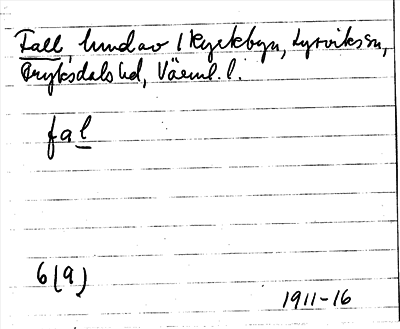 Tall, hmd av 1 Kyrkebyn, Lysviks sn,
Fryksdals hd, Värml. l.
fal
6(9)
1911-16